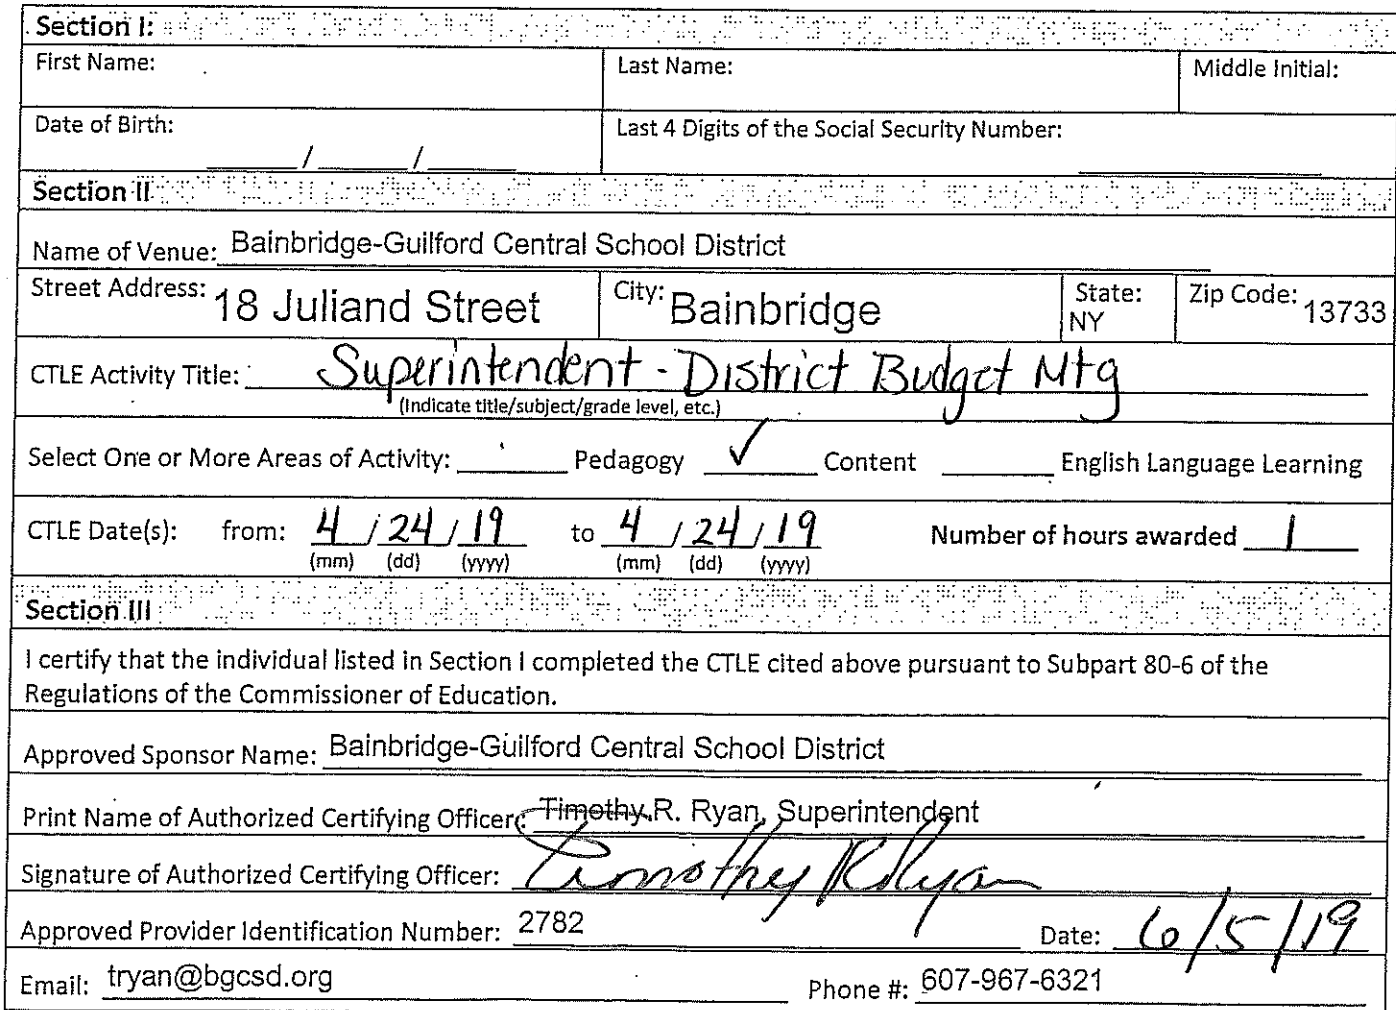 Section I:
First Name: Last Name: Middle Initial:
Date of Birth: Last 4 Digits of the Social Security Number:
____/____/____
Section II
Name of Venue: Bainbridge-Guilford Central School District
Street Address: 18 Juliand Street City: Bainbridge State: NY Zip Code: 13733
CTLE Activity Title: Superintendent - District Budget Mtg
(Indicate title/subject/grade level, etc.)
Select One or More Areas of Activity: ______ Pedagogy ✓ Content ______ English Language Learning
CTLE Date(s): from: 4/24/19 to 4/24/19 Number of hours awarded 1
(mm) (dd) (yyyy) (mm) (dd) (yyyy)
Section III
I certify that the individual listed in Section I completed the CTLE cited above pursuant to Subpart 80-6 of the
Regulations of the Commissioner of Education.
Approved Sponsor Name: Bainbridge-Guilford Central School District
Print Name of Authorized Certifying Officer: Timothy R. Ryan, Superintendent
Signature of Authorized Certifying Officer: Timothy R Ryan
Approved Provider Identification Number: 2782 Date: 6/5/19
Email: tryan@bgcsd.org Phone #: 607-967-6321